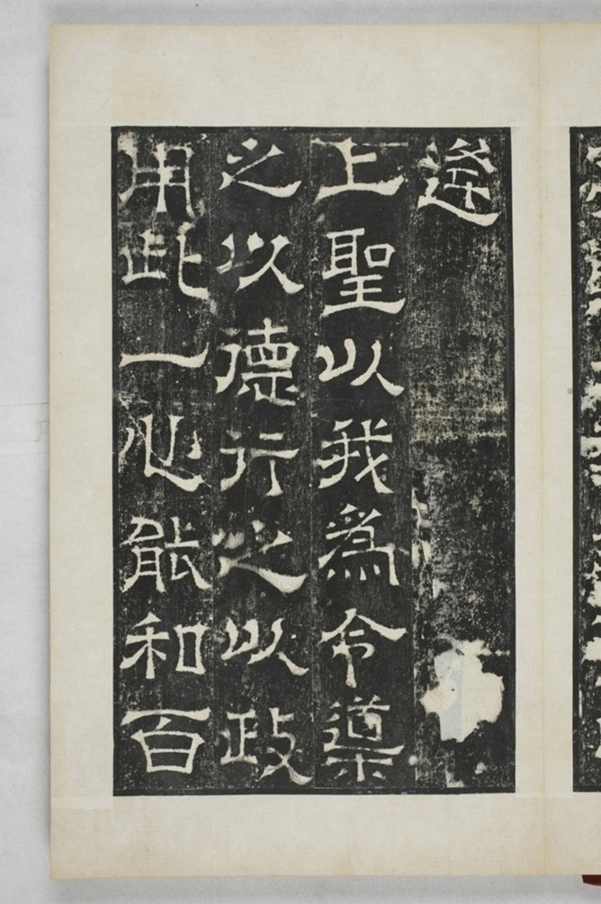 逢
上聖以我爲令導
之以德行之以政
用此一心能和百